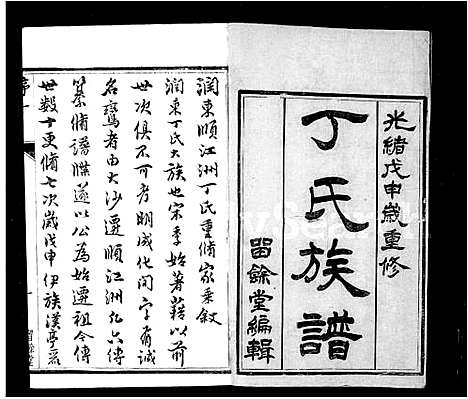 光緒戊申歲重修
丁氏族譜
留餘堂編輯
潤東順江洲丁氏重脩家乘敘
潤東丁氏大族也宋季始著籍以前
世次俱不可考明成化間字有誠
名鸞者由大沙遷順江洲弘六傳
纂脩譜牒遂以公為始遷祖今傳
世數十更脩七次歲戊申伊族漢亭
序一